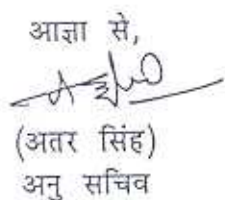 आज्ञा से,
(अतर सिंह)
अनु सचिव